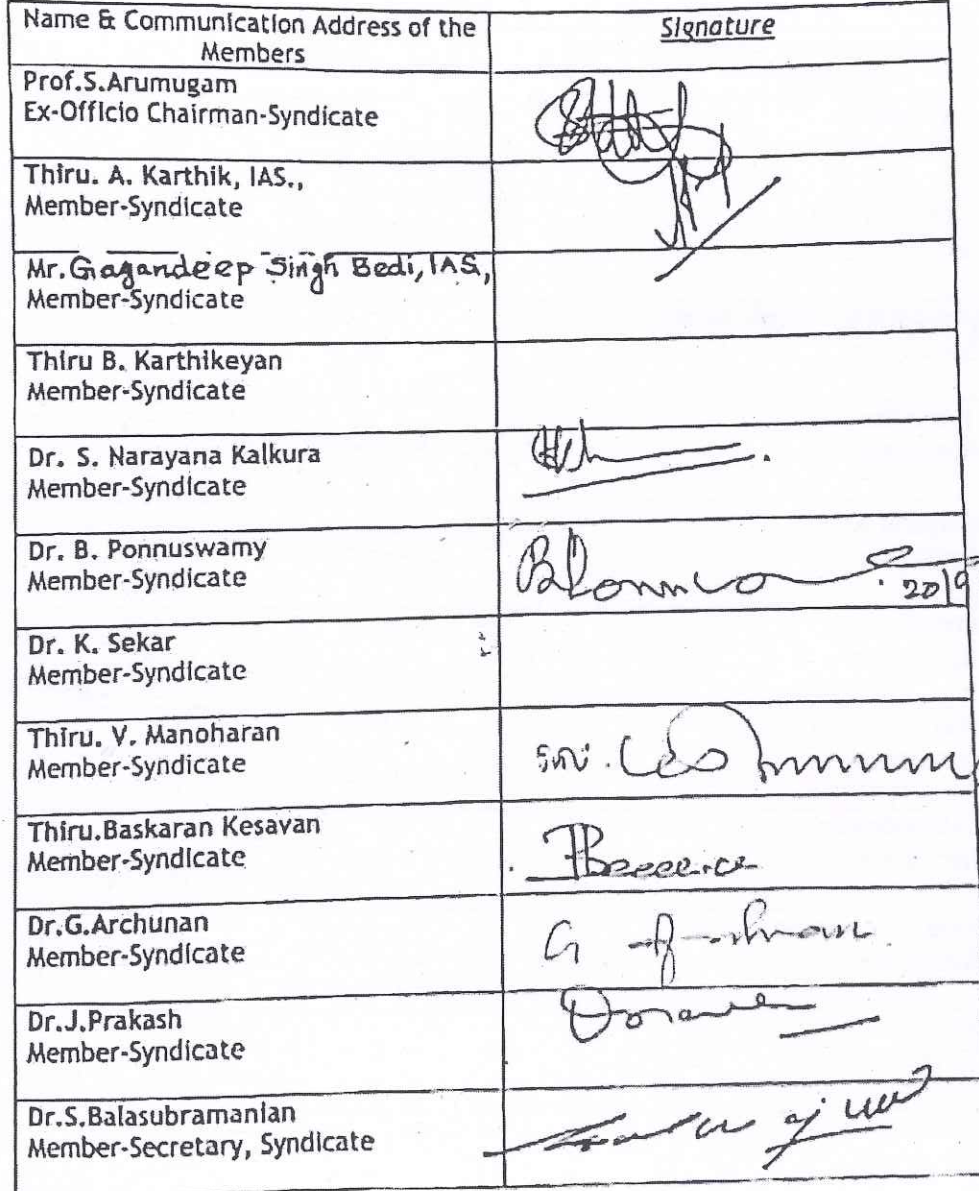 Name & Communication Address of the
Members
Signature
Prof.S.Arumugam
Ex-Officio Chairman-Syndicate
Thiru. A. Karthik, IAS.,
Member-Syndicate
Mr. Gagandeep Singh Bedi, IAS,
Member-Syndicate
Thiru B. Karthikeyan
Member-Syndicate
Dr. S. Narayana Kalkura
Member-Syndicate
Dr. B. Ponnuswamy
Member-Syndicate
20/9
Dr. K. Sekar
Member-Syndicate
Thiru. V. Manoharan
Member-Syndicate
Thiru.Baskaran Kesavan
Member-Syndicate
Dr.G.Archunan
Member-Syndicate
Dr.J.Prakash
Member-Syndicate
Dr.S.Balasubramanian
Member-Secretary, Syndicate